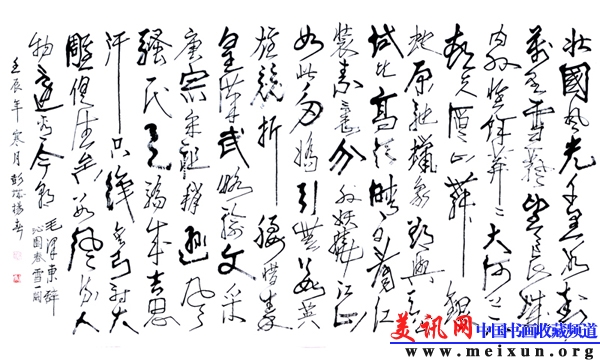 北國風光千里冰封
萬里雪飄望長城
内外惟餘莽々大河上下
頓失滔々山舞銀
蛇原馳蠟象欲與天公
試比高須晴日看紅
裝素裹分外妖嬈江山
如此多嬌引無數英
雄競折腰惜秦
皇漢武略輸文采
唐宗宋祖稍遜風
騷一代天驕成吉思
汗只識彎弓射大
雕俱往矣數風流人
物還看今朝
毛澤東詞
沁園春雪一闋
壬辰年寒月彭
美讯网 中国书画收藏频道
www.meixun.org